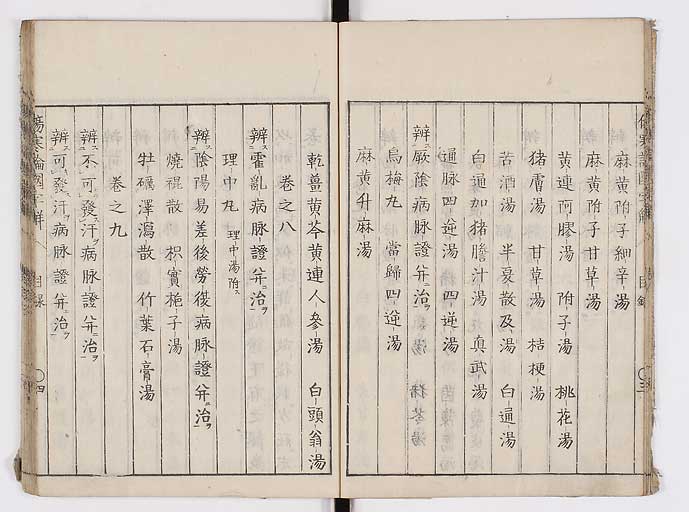 麻黄附子細辛湯
麻黄附子甘草湯
黄連阿膠湯 附子湯 桃花湯
猪膚湯 甘草湯 桔梗湯
苦酒湯 半夏散及湯 白通湯
白通加猪膽汁湯 真武湯
通脉四逆湯 四逆湯
辨厥陰病脉證并治 猪苓湯
烏梅丸 當歸四逆湯
麻黄升麻湯
乾薑黄芩黄連人參湯 白頭翁湯
卷之八
辨霍亂病脉證并治
理中丸 理中湯附
辨陰陽易差後勞復病脉證并治
燒裩散 枳實梔子湯
牡礪澤瀉散 竹葉石膏湯
卷之九
辨不可發汗病脉證并治
辨可發汗病脉證并治
傷寒論國字解 目録 〇四